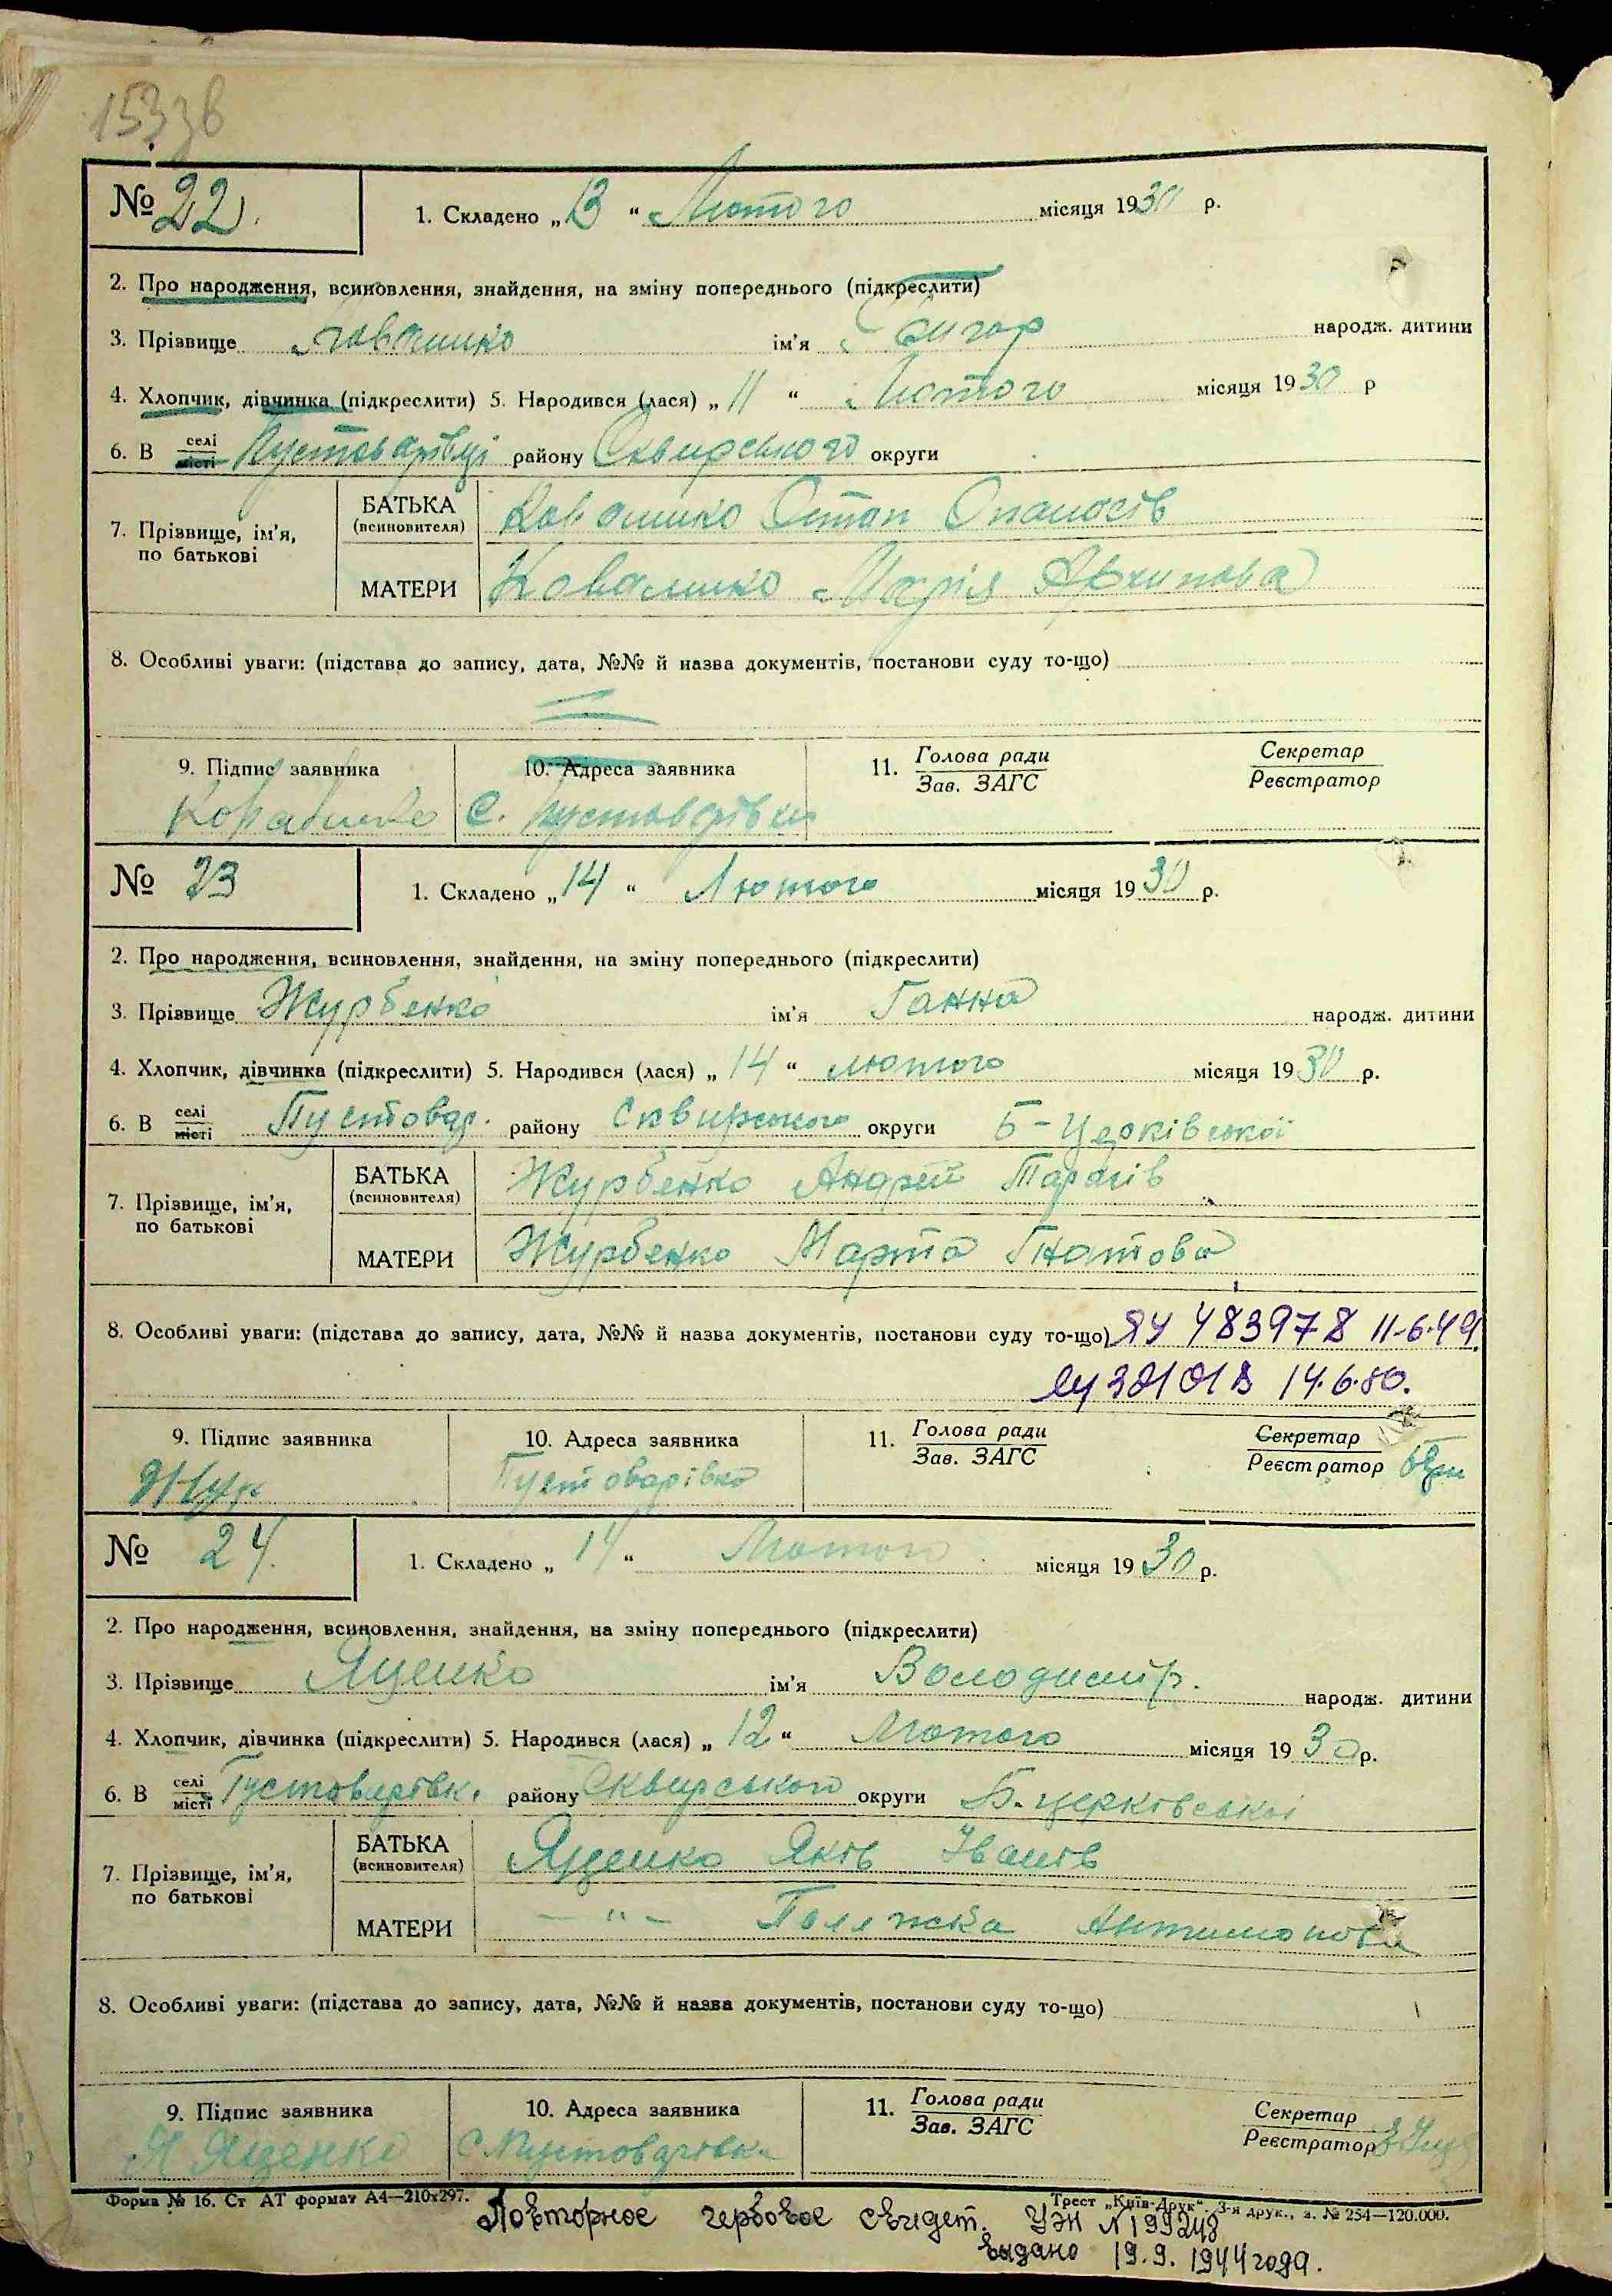 № 22. 1. Складено „13“ Лютого місяця 1930 р.
2. Про народження, всиновлення, знайдення, на зміну попереднього (підкреслити)
3. Прізвище ім'я народж. дитини
4. Хлопчик, дівчинка (підкреслити) 5. Народився (лася) „11“ Лютого місяця 1930 р
6. В селі місті Пустоварівці району Сквирського округи
7. Прізвище, ім'я, по батькові
БАТЬКА (всиновителя) Остап Опанасів
МАТЕРИ Марія Архипова
8. Особливі уваги: (підстава до запису, дата, №№ й назва документів, постанови суду то-що)
9. Підпис заявника 10. Адреса заявника 11. Голова ради Зав. ЗАГС Секретар Реєстратор
с. Пустоварівки
№ 23 1. Складено „14“ Лютого місяця 1930 р.
2. Про народження, всиновлення, знайдення, на зміну попереднього (підкреслити)
3. Прізвище Журбенко ім'я Ганна народж. дитини
4. Хлопчик, дівчинка (підкреслити) 5. Народився (лася) „14“ лютого місяця 1930 р.
6. В селі місті Пустовар. району Сквирського округи Б-Церківської
7. Прізвище, ім'я, по батькові
БАТЬКА (всиновителя) Журбенко Андрей Тарасів
МАТЕРИ Журбенко Марта Гнатова
8. Особливі уваги: (підстава до запису, дата, №№ й назва документів, постанови суду то-що) ЯУ 483978 11-6-49
14.6.80.
9. Підпис заявника 10. Адреса заявника 11. Голова ради Зав. ЗАГС Секретар Реєстратор
Жур Пустоварівка
№ 24. 1. Складено „14“ Лютого місяця 1930 р.
2. Про народження, всиновлення, знайдення, на зміну попереднього (підкреслити)
3. Прізвище Яценко ім'я Володимір. народж. дитини
4. Хлопчик, дівчинка (підкреслити) 5. Народився (лася) „12“ Лютого місяця 1930 р.
6. В селі місті Пустоварівк. району Сквирського округи Б-церківської
7. Прізвище, ім'я, по батькові
БАТЬКА (всиновителя) Яценко Яків Іванів
МАТЕРИ — " —
8. Особливі уваги: (підстава до запису, дата, №№ й назва документів, постанови суду то-що)
9. Підпис заявника 10. Адреса заявника 11. Голова ради Зав. ЗАГС Секретар Реєстратор
Я Яценко с Пустоварівка
Форма № 16. Ст АТ формат А4—210х297. Трест „Київ-Друк“. 3-я друк., з. № 254—120.000.
Повторное гербовое свидет. УЭН N 199248
выдано 19.9.1944 года.